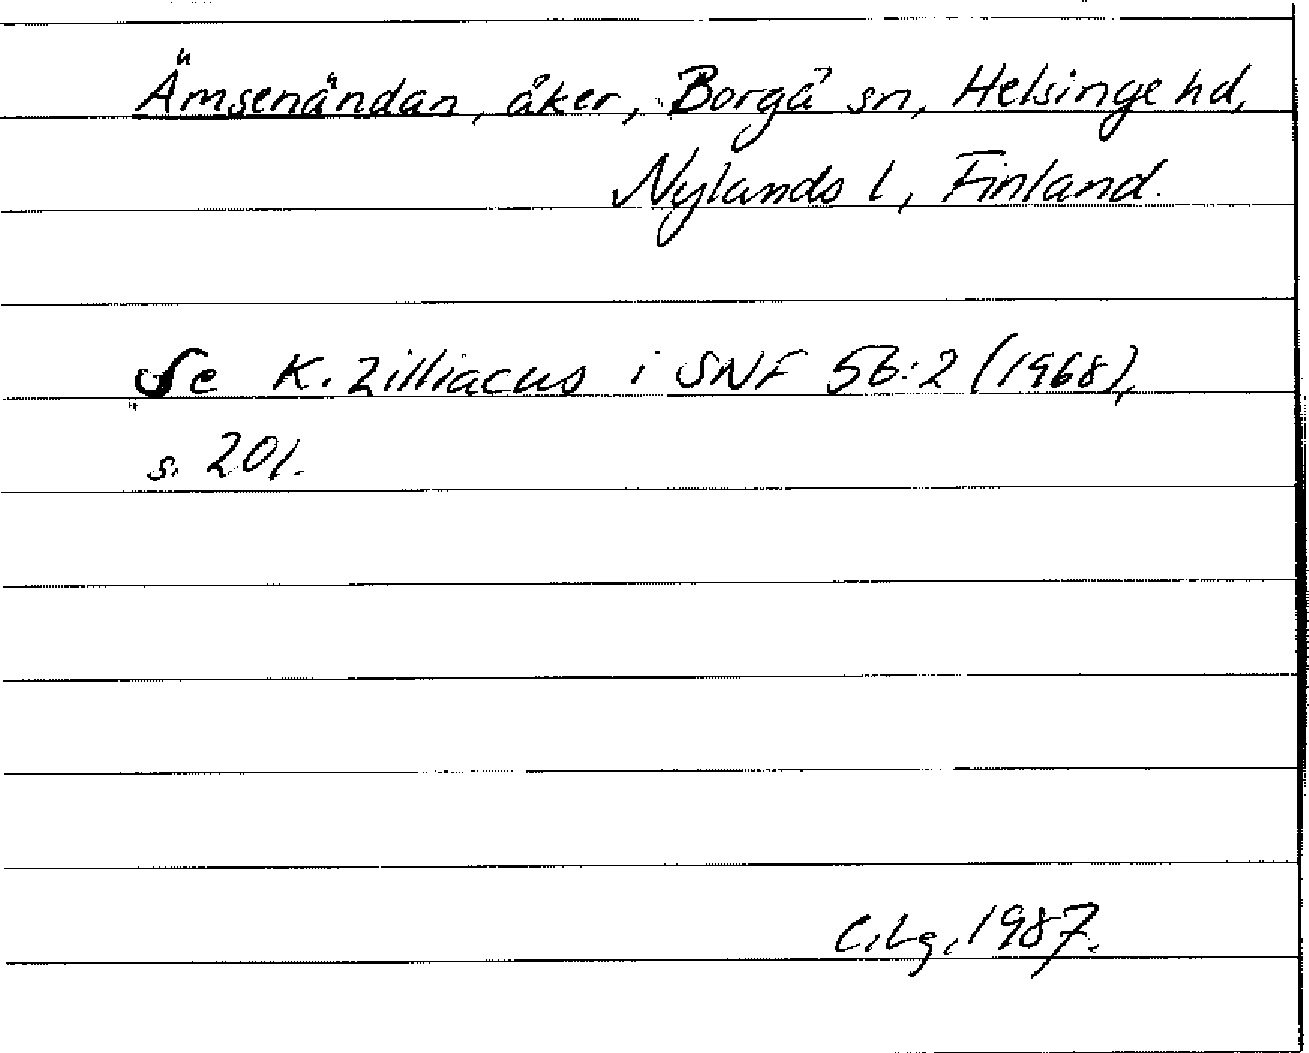 Ämsenändan, åker, Borgå sn, Helsinge hd,
Nylands l, Finland.
Se K. Zilliacus i SNF 56:2 (1968),
s. 201.
C.Lg. 1987.